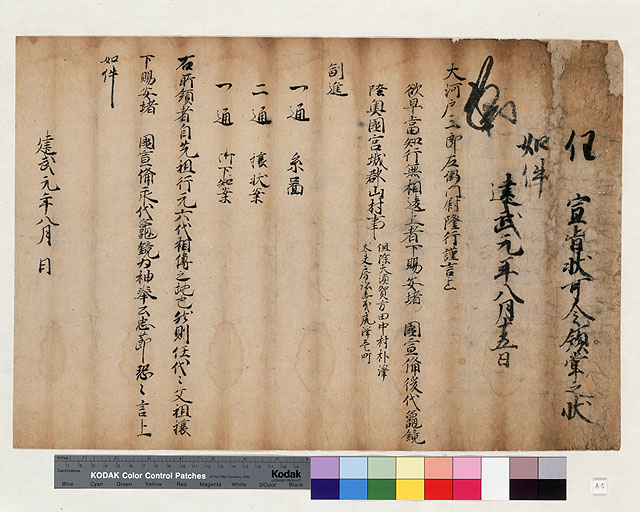 任 宣旨状可令領掌之状
如件
建武元年八月十五日
大河戸三郎左衛門尉隆行謹言上
欲早当知行無相違上者下賜安堵 國宣備後代龜鏡
陸奥國宮城郡山村事 但除大須賀方田中村朴澤
副進
一通 系圖
二通 譲状案
一通 御下知案
右所領者自先祖行元六代相傳之地也然則任代々父祖譲
下賜安堵 國宣備永代龜鏡為抽奉公忠節恐々言上
如件
建武元年八月 日
KODAK Color Control Patches
Kodak
LICENSED PRODUCT
Blue Cyan Green Yellow Red Magenta White 3/Color Black
A-5